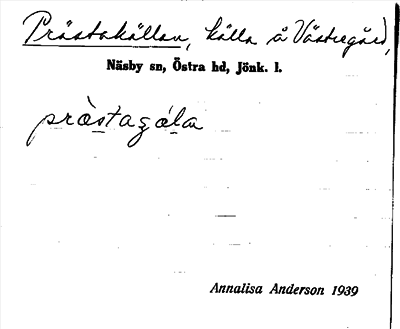 Prästakällan, källa å Västregård,
Näsby sn, Östra hd, Jönk. l.
Annalisa Anderson 1939